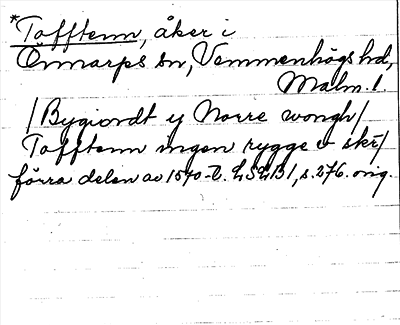 *Tofftenn, åker i
Önnarps sn, Vemmenhögs hd,
Malm. l.
/Bygiondt ij Norre wongh/
Tofftenn ingen rygge o skr/
förra delen av 1570-t. LSLB1, s. 276. orig.